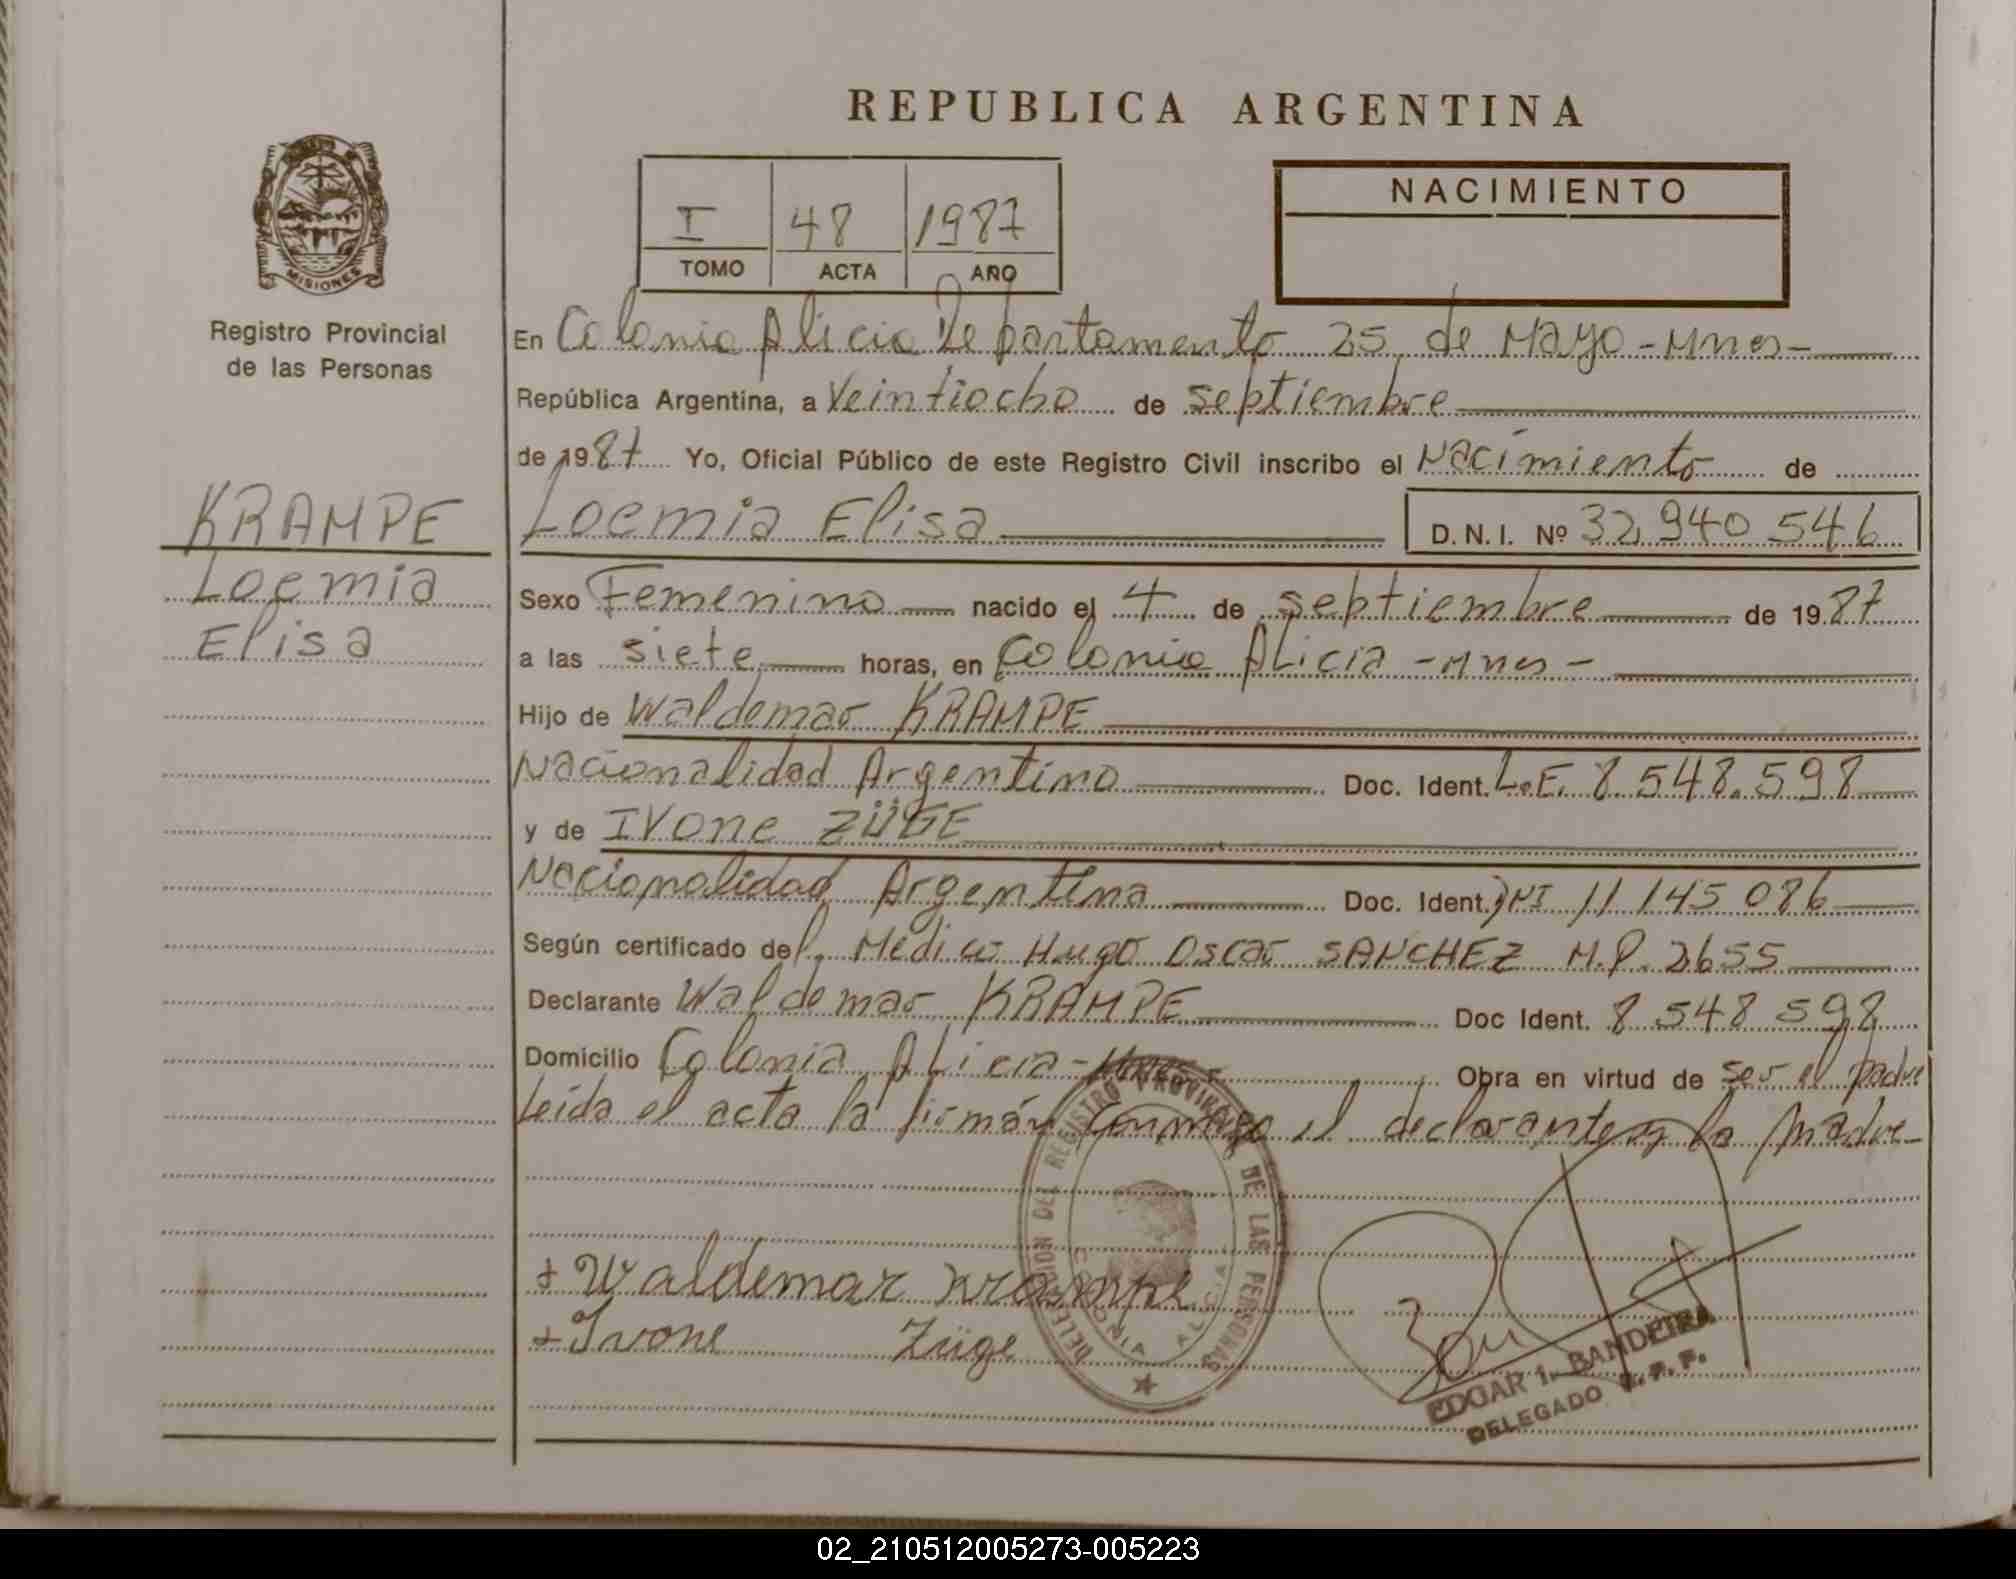 REPUBLICA ARGENTINA
MISIONES
Registro Provincial
de las Personas
I 48 1987
TOMO ACTA AÑO
NACIMIENTO
En Colonia Alicia Departamento 25 de Mayo - Mnes -
República Argentina, a Veintiocho de septiembre
de 1987 Yo, Oficial Público de este Registro Civil inscribo el Nacimiento de
KRAMPE
Loemia
Elisa
Loemia Elisa D.N.I. Nº 32.940 546
Sexo Femenino nacido el 4 de septiembre de 1987
a las siete horas, en Colonia Alicia - Mnes -
Hijo de Waldemar KRAMPE
Nacionalidad Argentino Doc. Ident. L.E. 8 548.598
y de IVone ZÜGE
Nacionalidad Argentina Doc. Ident. DNI 11 145 086
Según certificado del Médico Hugo Oscar SANCHEZ M.P. 2655
Declarante Waldemar KRAMPE Doc Ident. 8 548 598
Domicilio Colonia Alicia - Mnes - Obra en virtud de ser el padre
Leida el acta la firmán conmigo el declarante y la Madre -
+ Waldemar Krampe
+ Ivone Züge
DELEGACION DEL REGISTRO PROVINCIAL DE LAS PERSONAS
COLONIA ALICIA
EDGAR I. BANDEIRA
DELEGADO
02_210512005273-005223